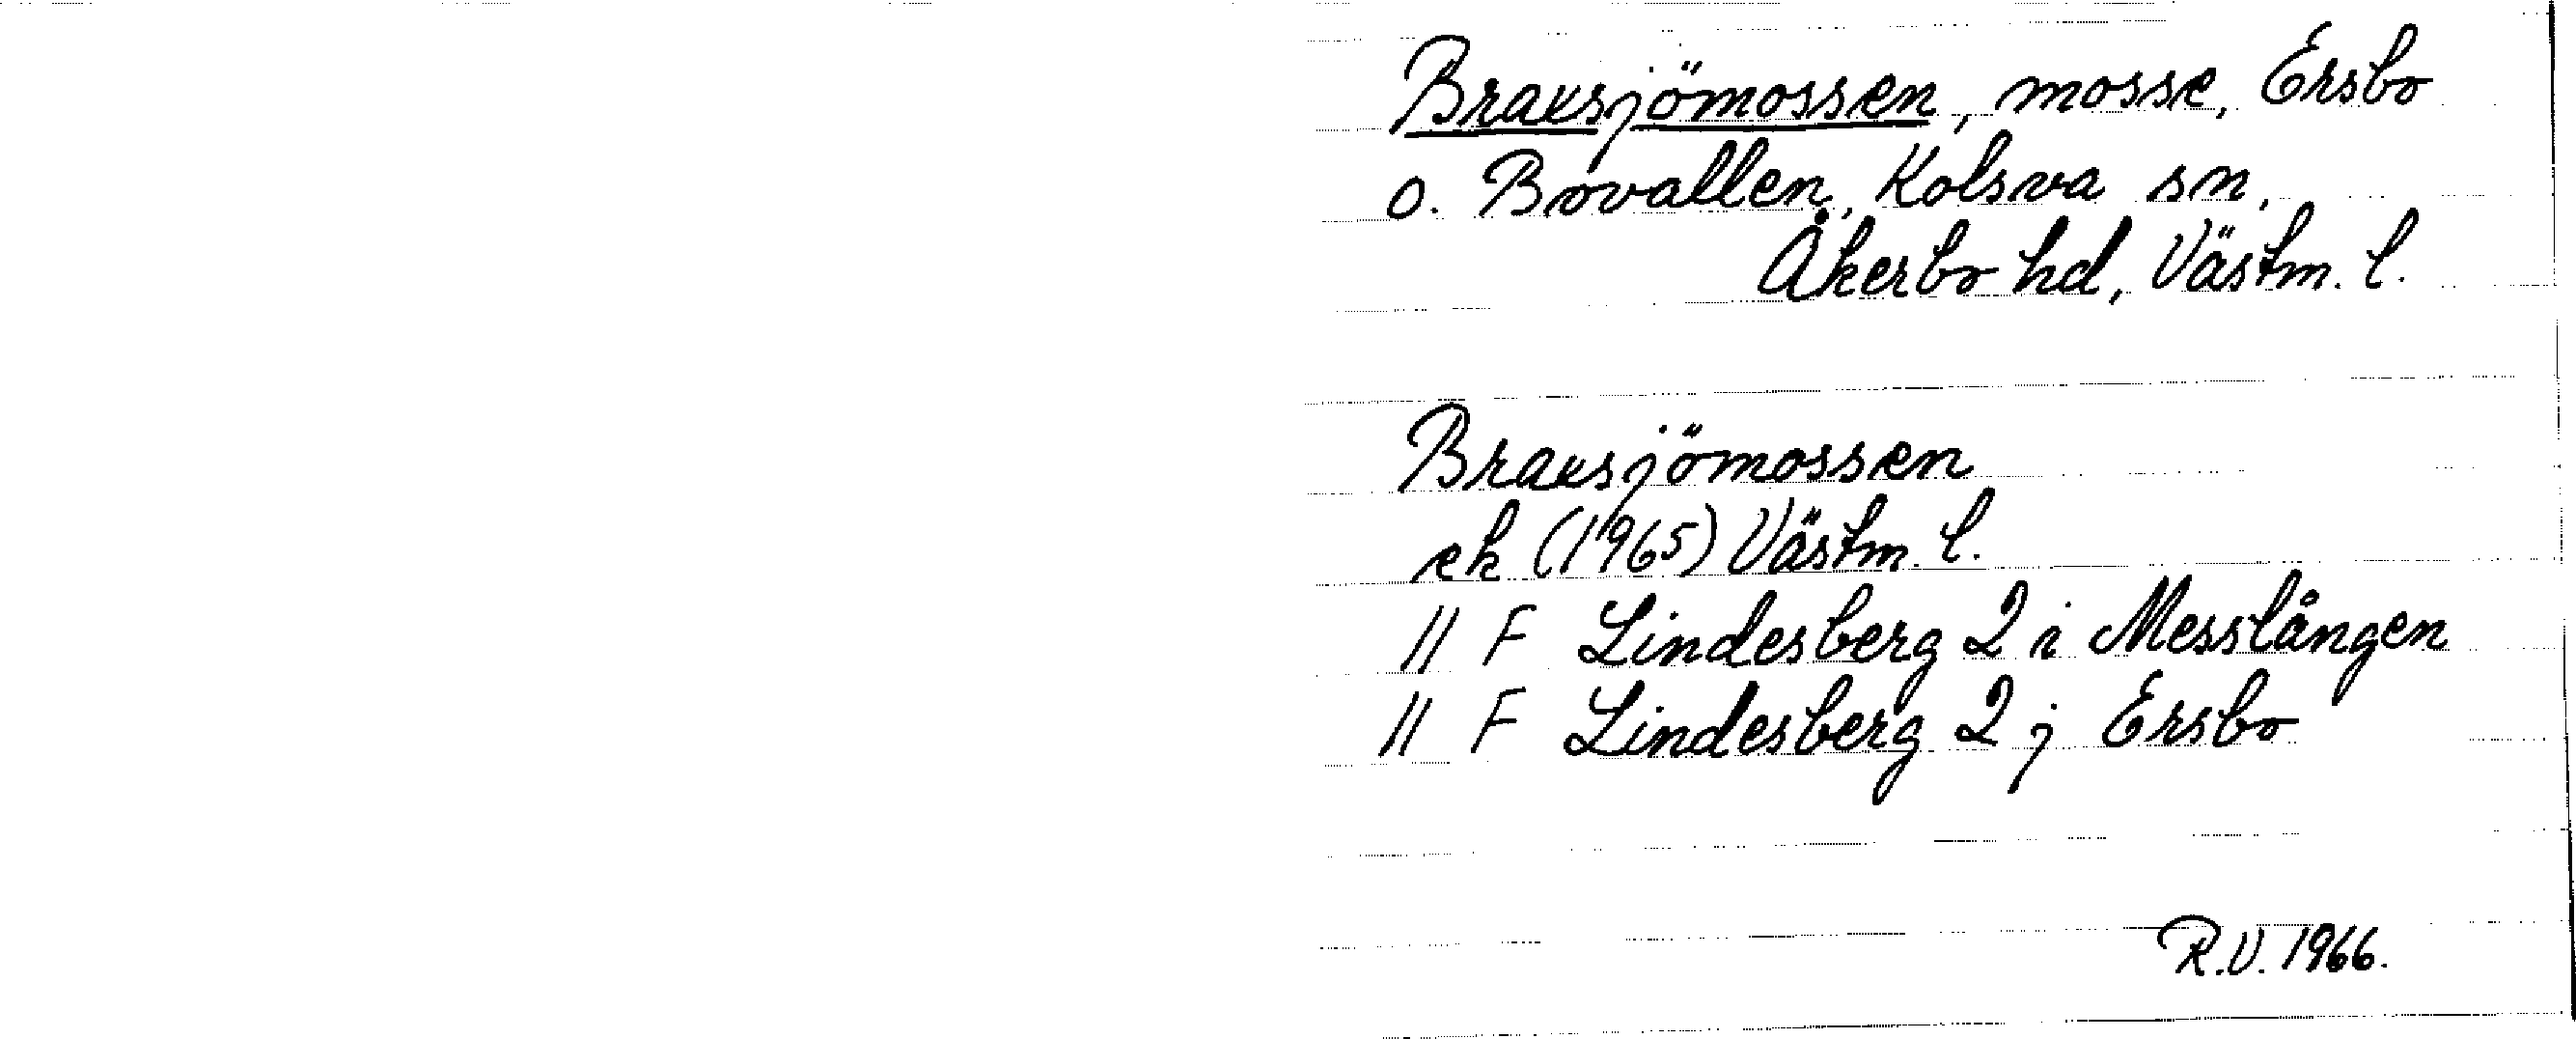 Braxsjömossen, mosse, Ersbo
o. Bovallen, Kolsva sn,
Åkerbo hd, Västm. l.
Braxsjömossen
ek (1965) Västm. l.
// F Lindesberg 2 i Messlången
// F Lindesberg 2 j Ersbo
R.V. 1966.